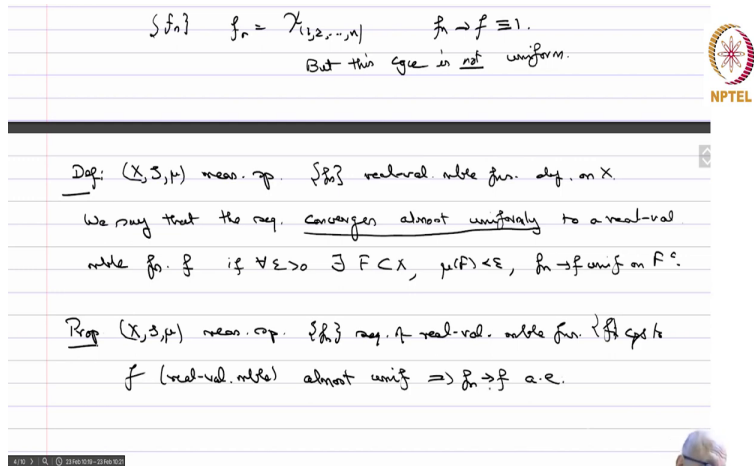 {fn} fn = χ{1,2,...,n} fn → f ≡ 1.
But this cgce is not uniform.
NPTEL
Def: (X, S, μ) meas. sp. {fn} real-val. mble fns. def. on X.
We say that the seq. converges almost uniformly to a real-val
mble fn. f if ∀ε>0 ∃ F⊂X, μ(F)<ε, fn→f unif on Fᶜ.
Prop (X, S, μ) meas. sp. {fn} seq. of real-val. mble fns. {fn} cgs to
f (real-val. mble) almost unif ⇒ fn→f a.e.
4/10 23 Feb 10:19 - 23 Feb 10:21